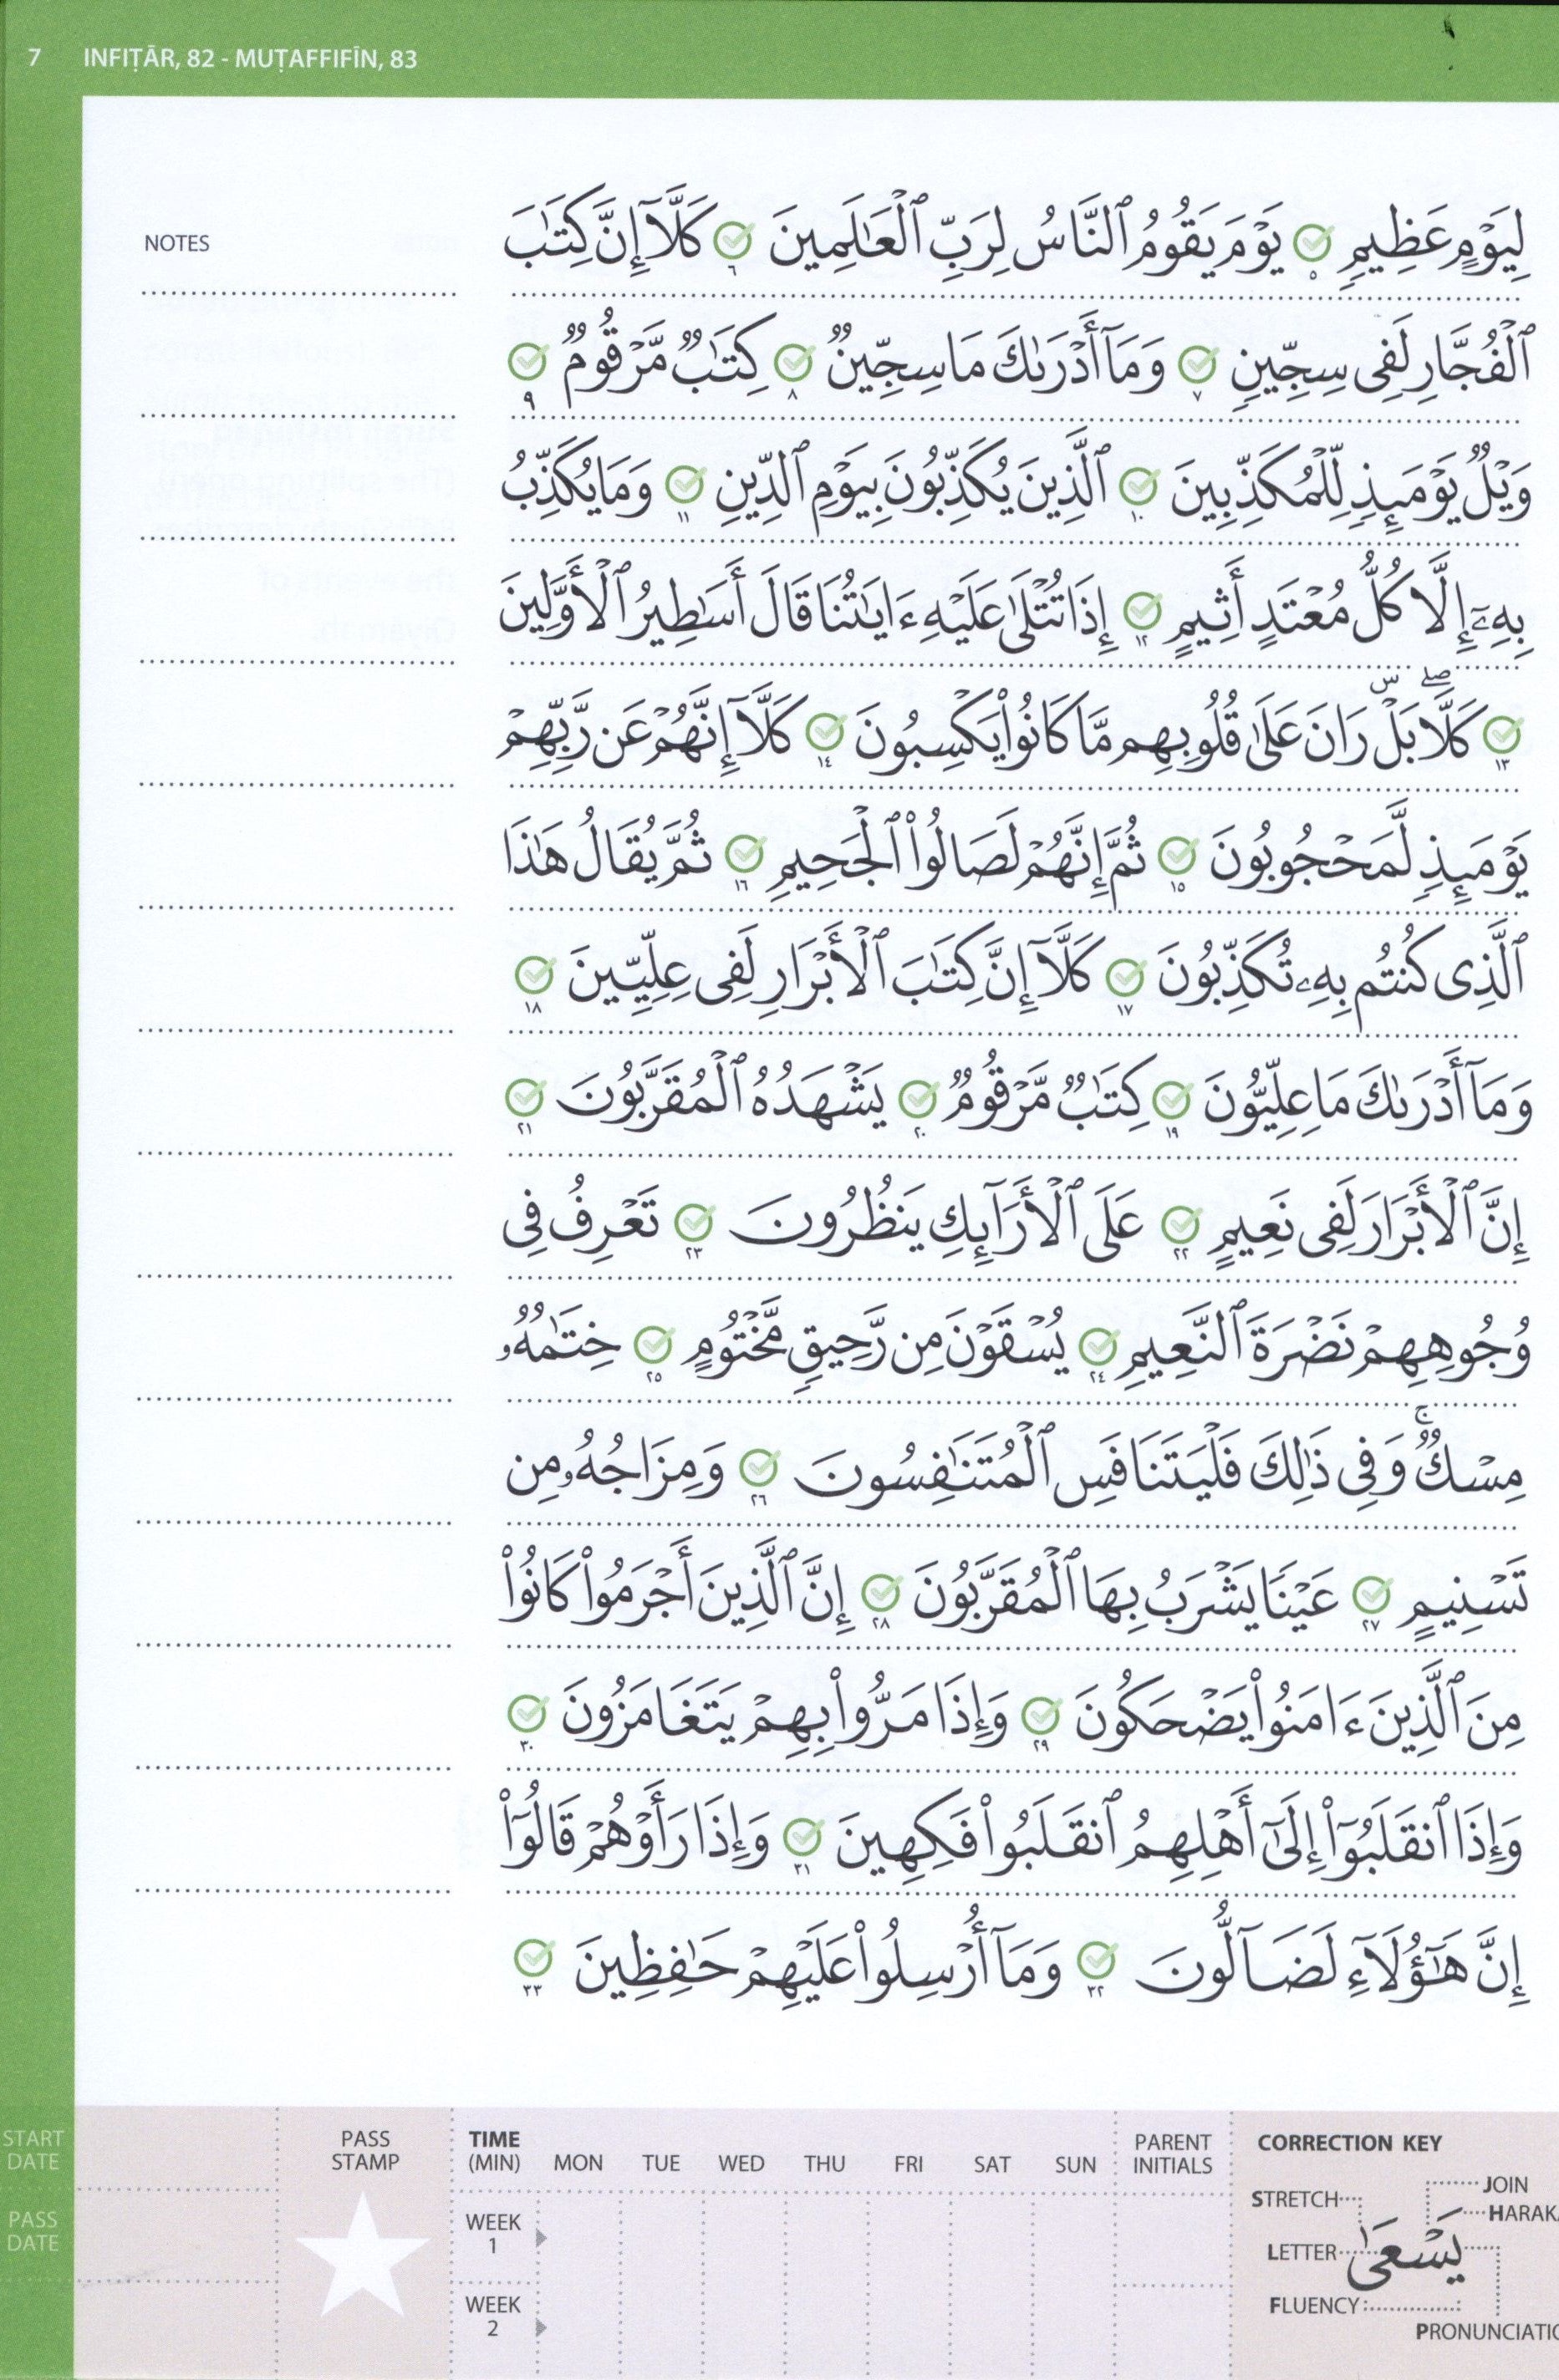 7 INFIṬĀR, 82 - MUṬAFFIFĪN, 83
NOTES
لِيَوْمٍ عَظِيمٍ ٥ يَوْمَ يَقُومُ ٱلنَّاسُ لِرَبِّ ٱلْعَٰلَمِينَ ٦ كَلَّآ إِنَّ كِتَٰبَ
ٱلْفُجَّارِ لَفِى سِجِّينٍ ٧ وَمَآ أَدْرَىٰكَ مَا سِجِّينٌ ٨ كِتَٰبٌ مَّرْقُومٌ ٩
وَيْلٌ يَوْمَئِذٍ لِّلْمُكَذِّبِينَ ١٠ ٱلَّذِينَ يُكَذِّبُونَ بِيَوْمِ ٱلدِّينِ ١١ وَمَا يُكَذِّبُ
بِهِۦٓ إِلَّا كُلُّ مُعْتَدٍ أَثِيمٍ ١٢ إِذَا تُتْلَىٰ عَلَيْهِ ءَايَٰتُنَا قَالَ أَسَٰطِيرُ ٱلْأَوَّلِينَ
١٣ كَلَّا ۖ بَلْ ۜ رَانَ عَلَىٰ قُلُوبِهِم مَّا كَانُوا۟ يَكْسِبُونَ ١٤ كَلَّآ إِنَّهُمْ عَن رَّبِّهِمْ
يَوْمَئِذٍ لَّمَحْجُوبُونَ ١٥ ثُمَّ إِنَّهُمْ لَصَالُوا۟ ٱلْجَحِيمِ ١٦ ثُمَّ يُقَالُ هَٰذَا
ٱلَّذِى كُنتُم بِهِۦ تُكَذِّبُونَ ١٧ كَلَّآ إِنَّ كِتَٰبَ ٱلْأَبْرَارِ لَفِى عِلِّيِّينَ ١٨
وَمَآ أَدْرَىٰكَ مَا عِلِّيُّونَ ١٩ كِتَٰبٌ مَّرْقُومٌ ٢٠ يَشْهَدُهُ ٱلْمُقَرَّبُونَ ٢١
إِنَّ ٱلْأَبْرَارَ لَفِى نَعِيمٍ ٢٢ عَلَى ٱلْأَرَآئِكِ يَنظُرُونَ ٢٣ تَعْرِفُ فِى
وُجُوهِهِمْ نَضْرَةَ ٱلنَّعِيمِ ٢٤ يُسْقَوْنَ مِن رَّحِيقٍ مَّخْتُومٍ ٢٥ خِتَٰمُهُۥ
مِسْكٌ ۚ وَفِى ذَٰلِكَ فَلْيَتَنَافَسِ ٱلْمُتَنَٰفِسُونَ ٢٦ وَمِزَاجُهُۥ مِن
تَسْنِيمٍ ٢٧ عَيْنًا يَشْرَبُ بِهَا ٱلْمُقَرَّبُونَ ٢٨ إِنَّ ٱلَّذِينَ أَجْرَمُوا۟ كَانُوا۟
مِنَ ٱلَّذِينَ ءَامَنُوا۟ يَضْحَكُونَ ٢٩ وَإِذَا مَرُّوا۟ بِهِمْ يَتَغَامَزُونَ ٣٠
وَإِذَا ٱنقَلَبُوٓا۟ إِلَىٰٓ أَهْلِهِمُ ٱنقَلَبُوا۟ فَكِهِينَ ٣١ وَإِذَا رَأَوْهُمْ قَالُوٓا۟
إِنَّ هَٰٓؤُلَآءِ لَضَآلُّونَ ٣٢ وَمَآ أُرْسِلُوا۟ عَلَيْهِمْ حَٰفِظِينَ ٣٣
START DATE
PASS DATE
PASS STAMP
TIME (MIN) MON TUE WED THU FRI SAT SUN PARENT INITIALS
WEEK 1
WEEK 2
CORRECTION KEY
JOIN
STRETCH
HARAKA
يَسْعَىٰ
LETTER
FLUENCY
PRONUNCIATIO